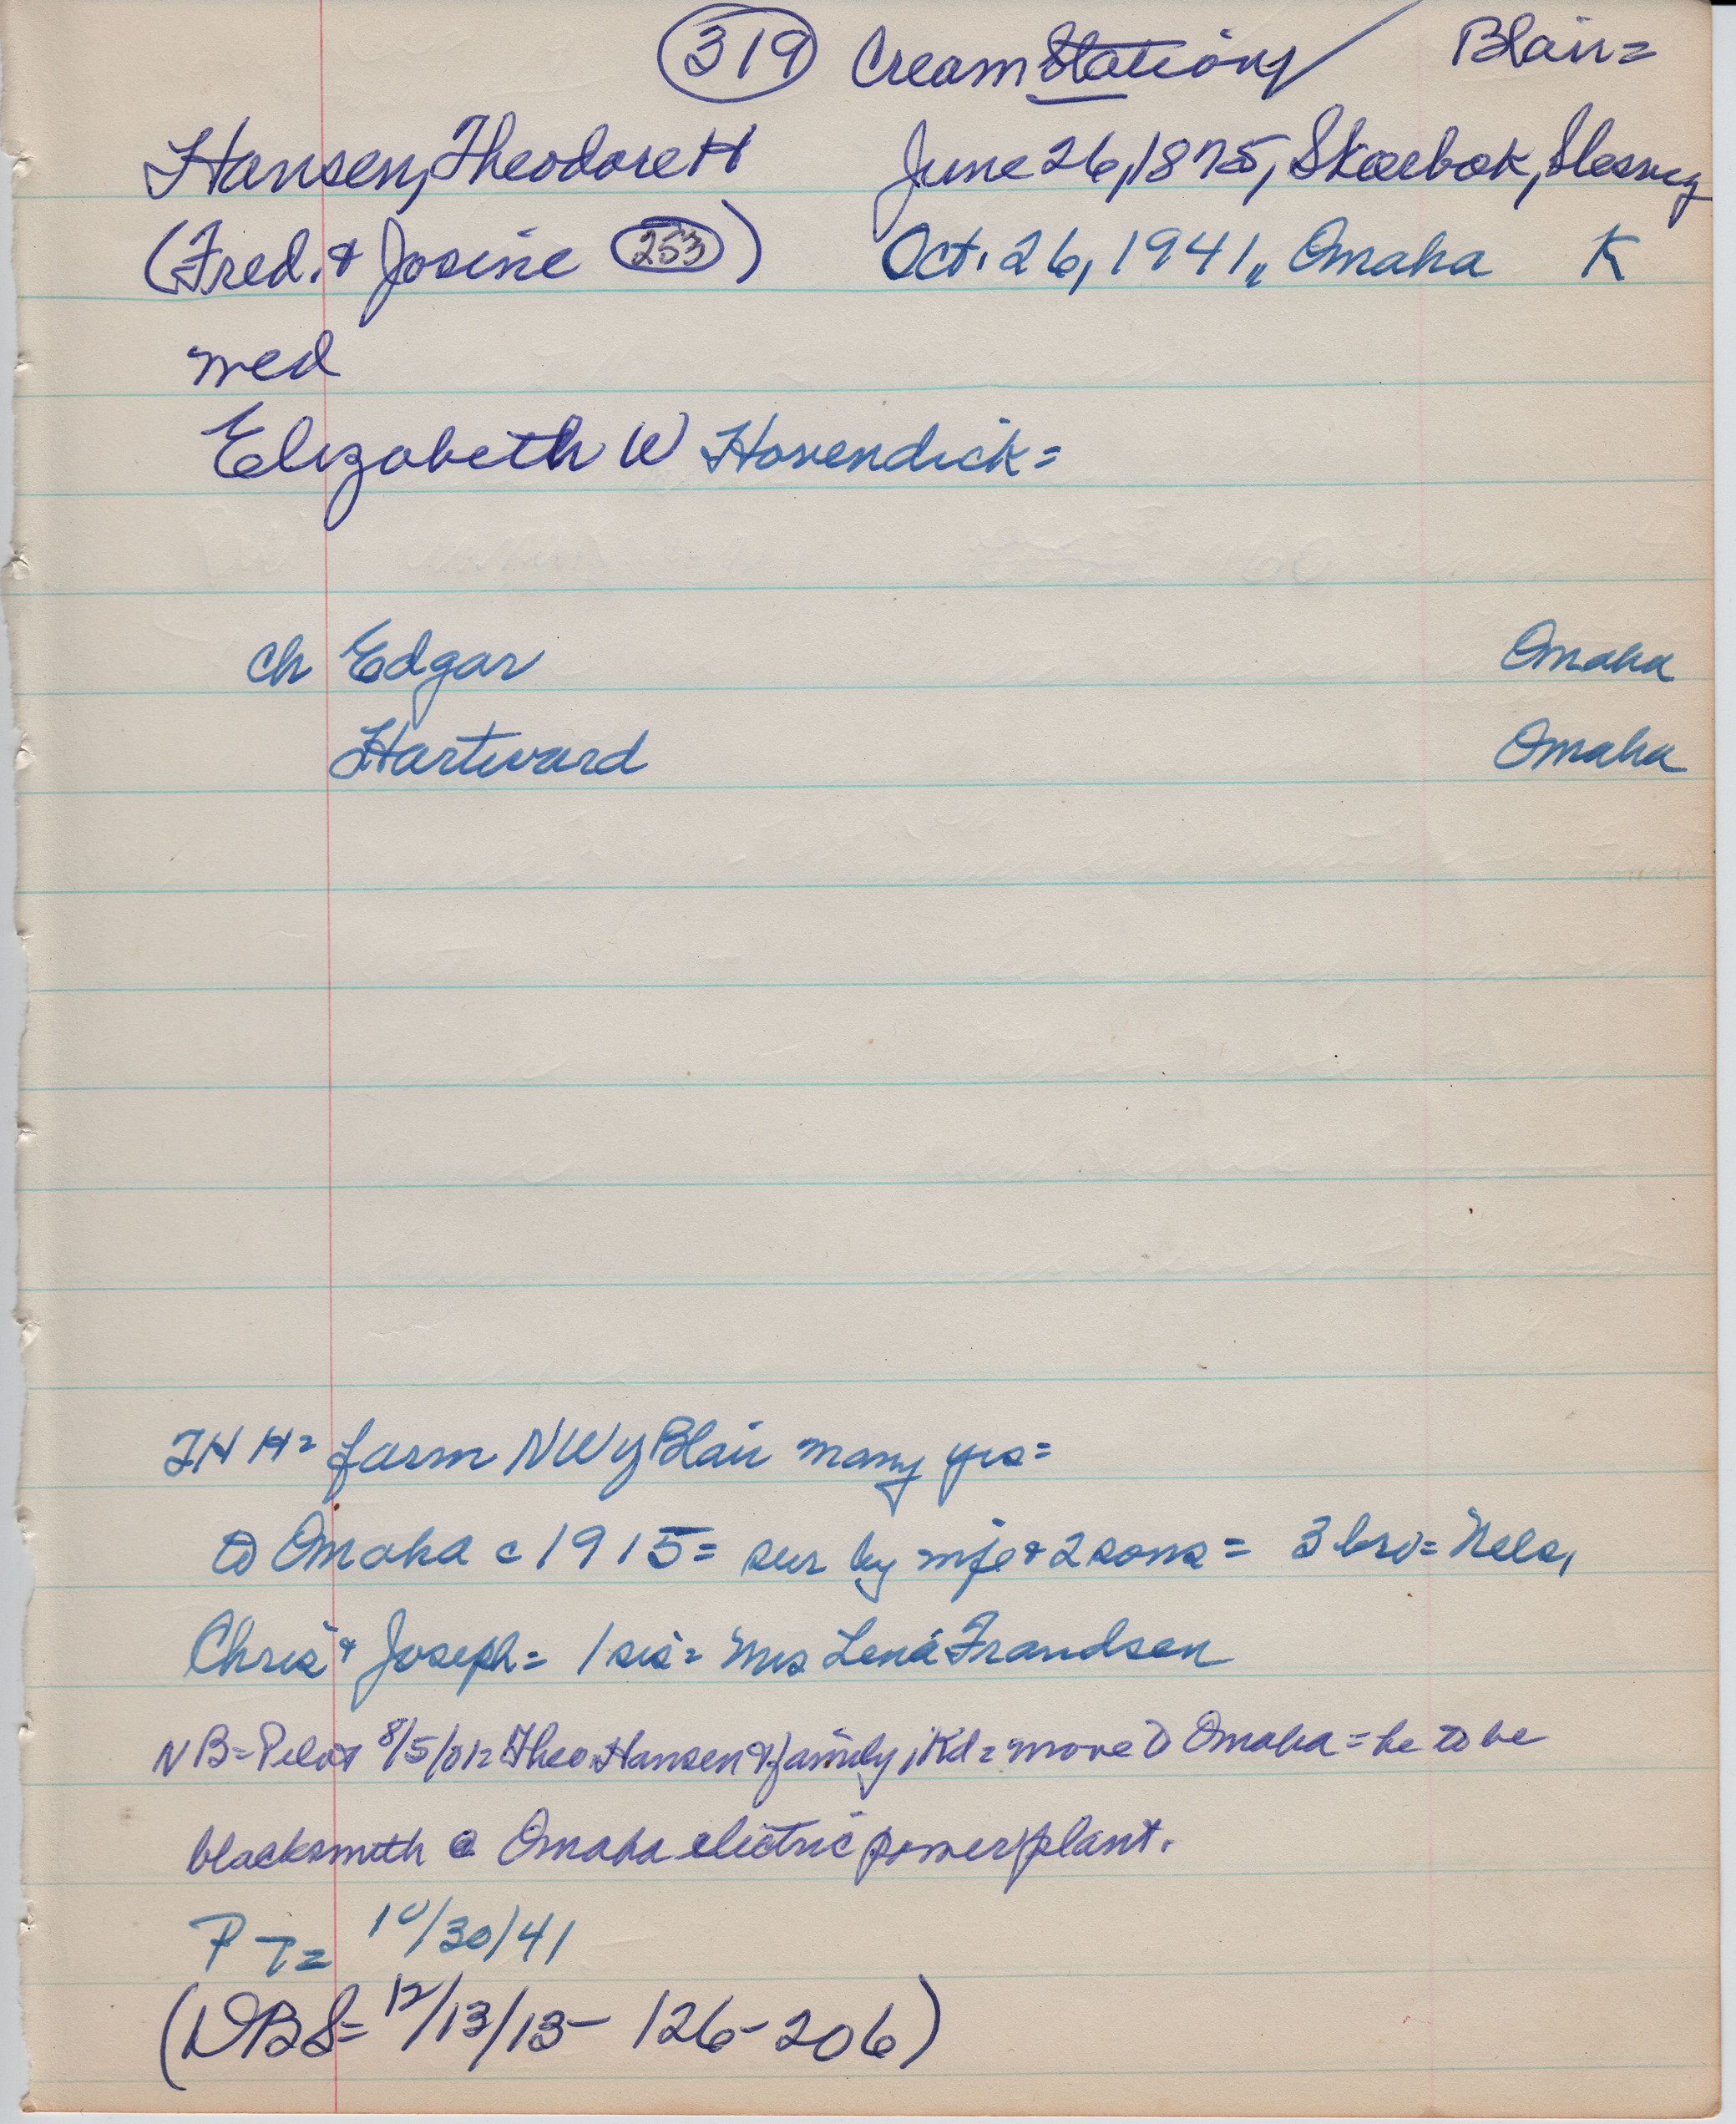 319 Cream Station Blair=
Hansen, Theodore H June 26, 1875, Skaerbak, Slesvig
(Fred. & Josine 253) Oct. 26, 1941,, Omaha K
med
Elizabeth W Hovendick=
ch Edgar Omaha
Hartward Omaha
THH= farm NW of Blair many yrs=
to Omaha c 1915= sur by wife & 2 sons= 3 bro= Nels,
Chris & Joseph= 1 sis= Mrs Lena Frandsen
NB= Pilot 8/5/01= Theo. Hansen & family, Kd= move to Omaha= he to be
blacksmith @ Omaha electric power plant.
P T= 10/30/41
(DBS= 12/13/13- 126-206)